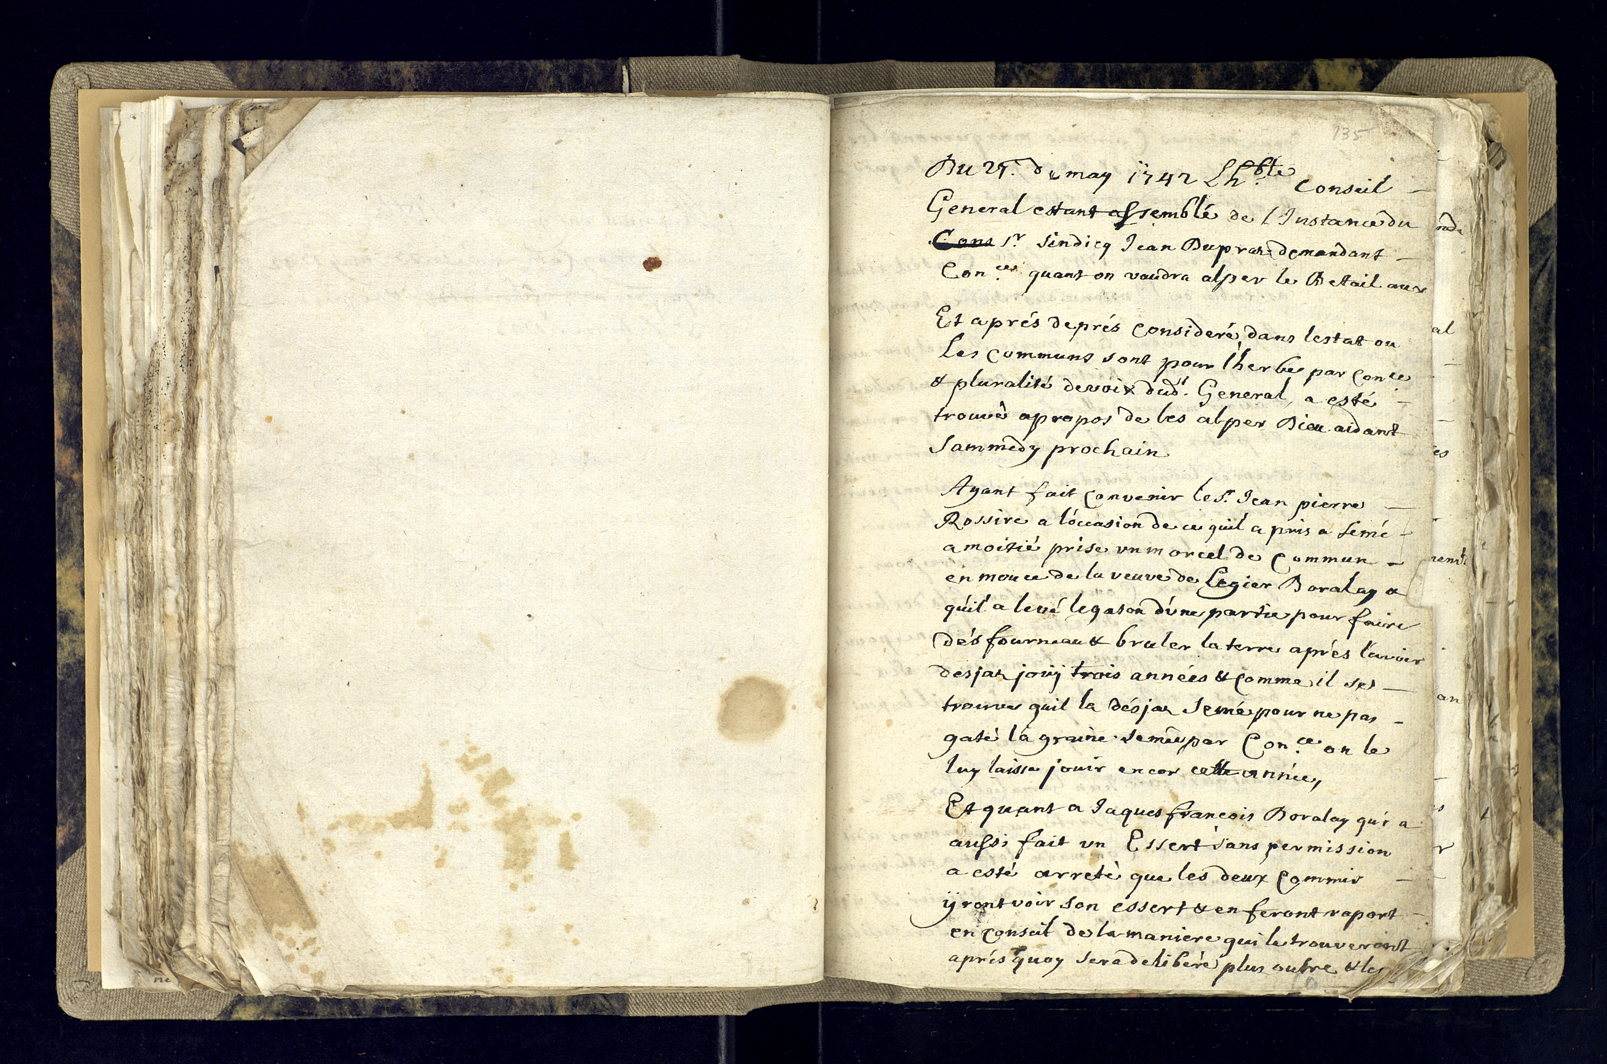 135
Du 25.e de may 1742 Lh.ble Conseil
General estant assemblé de l'Instance du
Cons Sr. Sindicq Jean Dupraz demandant
Con.ce quant on vaudra alper le Betail aux
Et aprés deprés consideré dans lestat ou
les communs sont pour l'herbe par con.ce
& pluralité de voix dud.t General a esté
trouvé apropos de les alper Dieu aidant
Sammedy prochain
Ayant fait convenir le Sr. Jean pierre
Rossire a l'occasion de ce quil a pris a semé
a moitié prise un morcel de Commun
en mouce de la veuve de Legier Boralay a
quil a levé le gason d'une partie pour faire
des fourneau & bruler la terre aprés l'avoir
desjaz jouÿ trois années & comme il se
trouve quil la désjaz semé pour ne pas
gaté la graine semée par Con.ce on le
luy laisse jouir encor cette année,
Et quant a Jaques francois Boralay qui a
aussi fait un Essert sans permission
a esté arreté que les deux Commis
ÿront voir son essert & en feront raport
en conseil de la maniere qui le trouveront
aprés quoy sera deliberé plus outre & les